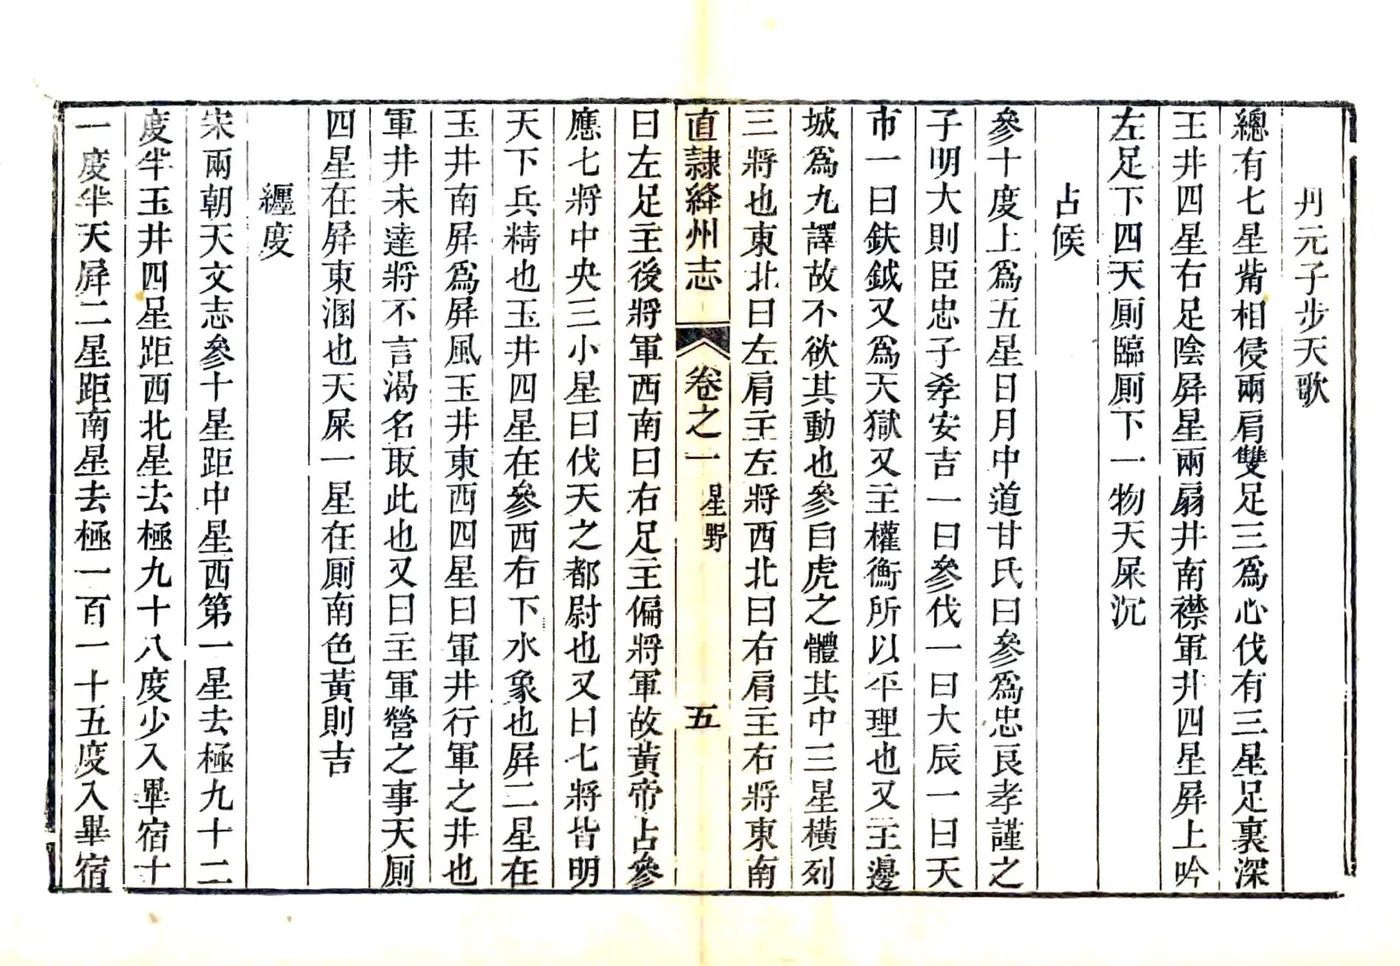 丹元子步天歌
總有七星觜相侵兩肩雙足三爲心伐有三星足裏深
玉井四星右足陰屛星兩扇井南襟軍井四星屛上吟
左足下四天厠臨厠下一物天屎沉
占候
參十度上爲五星日月中道甘氏曰參爲忠良孝謹之
子明大則臣忠子孝安吉一曰參伐一曰大辰一曰天
市一曰鈇鉞又爲天獄又主權衡所以平理也又主邊
城爲九譯故不欲其動也參白虎之體其中三星橫列
三將也東北曰左肩主左將西北曰右肩主右將東南
直隷絳州志 卷之一 星野 五
曰左足主後將軍西南曰右足主偏將軍故黃帝占參
應七將中央三小星曰伐天之都尉也又曰七將皆明
天下兵精也玉井四星在參西右下水象也屛二星在
玉井南屛爲屛風玉井東西四星曰軍井行軍之井也
軍井未達將不言渴名取此也又曰主軍營之事天厠
四星在屛東溷也天屎一星在厠南色黃則吉
纒度
宋兩朝天文志參十星距中星西第一星去極九十二
度半玉井四星距西北星去極九十八度少入畢宿十
一度半天屛二星距南星去極一百一十五度入畢宿